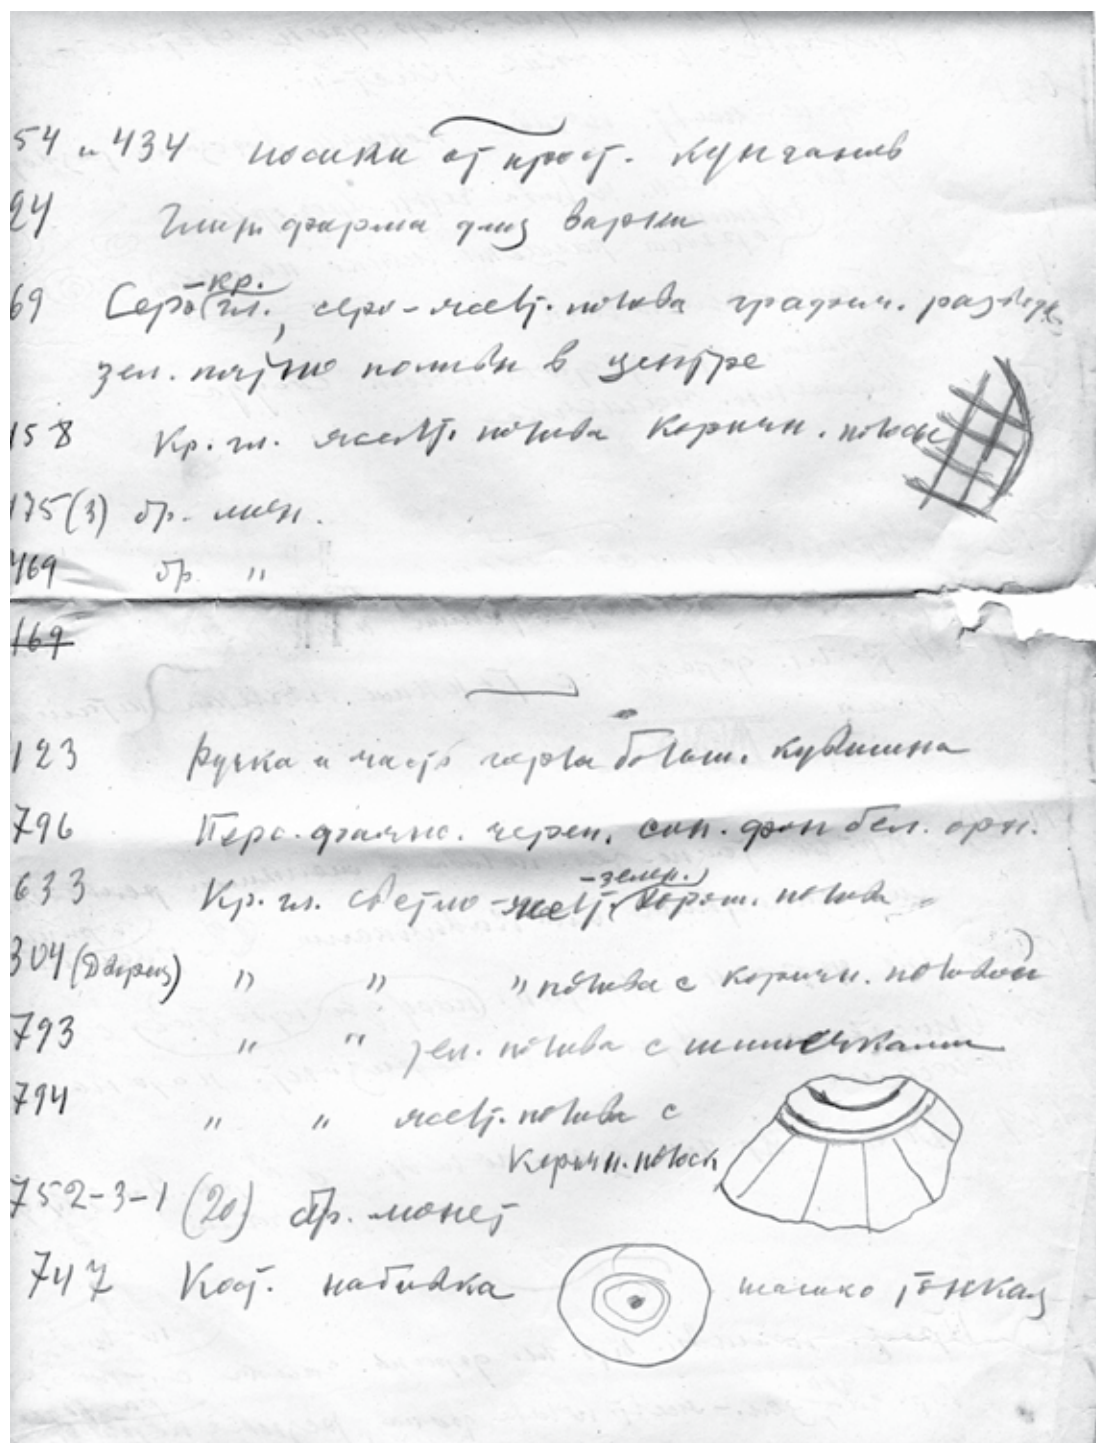 54 и 434 носики от прост. кумганов
24 Гипс. форма для варки
69 Серо-кр. гл., серо-желт. полива графич. разводы
зел. пятно поливы в центре
158 Кр. гл. желт. полива коричн. полосы
175(3) бр. мон.
469 бр. "
169
123 Ручка и часть горла больш. кувшина
796 Перс. фаянс. череп. син. фон бел. орн.
633 Кр. гл. светло-желт.-зелен. хорош. полива
304 (Дворец) " " " полива с коричн. поливой
793 " " зел. полива с шишечками
794 " " желт. полива с
коричн. полоск
752-3-1 (20) бр. монет
747 Кост. набивка только тонкая